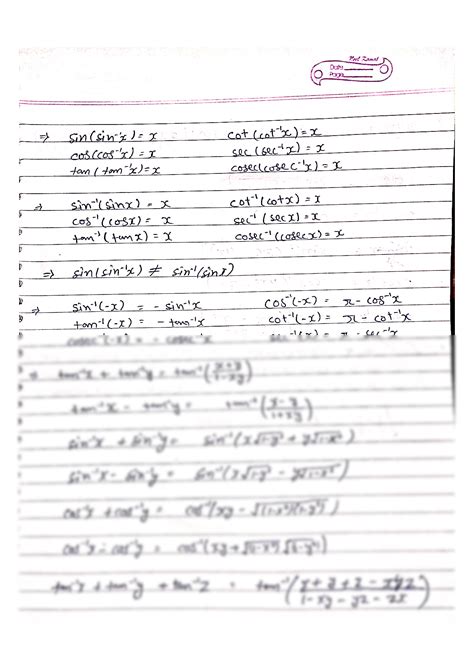 Date
Page
⇒ sin(sin⁻¹x) = x    cot(cot⁻¹x) = x
cos(cos⁻¹x) = x    sec(sec⁻¹x) = x
tan(tan⁻¹x) = x    cosec(cosec⁻¹x) = x
⇒ sin⁻¹(sinx) = x    cot⁻¹(cotx) = x
cos⁻¹(cosx) = x    sec⁻¹(secx) = x
tan⁻¹(tanx) = x    cosec⁻¹(cosecx) = x
⇒ sin(sin⁻¹x) ≠ sin⁻¹(sinx)
⇒ sin⁻¹(-x) = - sin⁻¹x    cos⁻¹(-x) = π - cos⁻¹x
tan⁻¹(-x) = - tan⁻¹x    cot⁻¹(-x) = π - cot⁻¹x
cosec⁻¹(-x) = - cosec⁻¹x    sec⁻¹(-x) = π - sec⁻¹x
⇒ tan⁻¹x + tan⁻¹y = tan⁻¹(x+y/1-xy)
tan⁻¹x - tan⁻¹y = tan⁻¹(x-y/1+xy)
sin⁻¹x + sin⁻¹y = sin⁻¹
sin⁻¹x - sin⁻¹y = sin⁻¹
cos⁻¹x + cos⁻¹y = cos⁻¹
cos⁻¹x - cos⁻¹y = cos⁻¹
tan⁻¹x + tan⁻¹y + tan⁻¹z = tan⁻¹